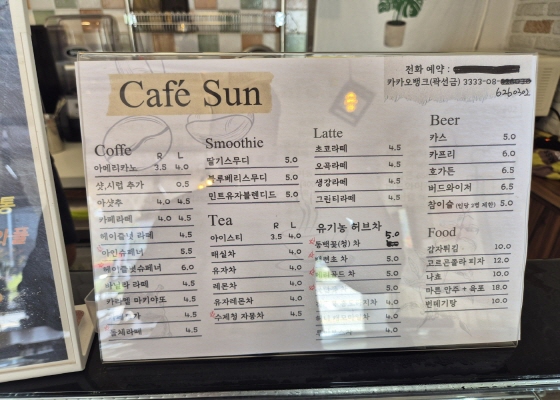 Café Sun
전화 예약 :
카카오뱅크(곽선금) 3333-08-
6260302
Coffe
R L
아메리카노 3.5 4.0
샷,시럽 추가 0.5
아샷추 4.0 4.5
카페라떼 4.0 4.5
헤이즐넛 라떼 4.5
아인슈페너 5.5
헤이즐넛슈페너 6.0
바닐라 라떼 4.5
카라멜 마키아또 4.5
4.5
4.5
Smoothie
딸기스무디 5.0
블루베리스무디 5.0
민트유자블렌디드 5.0
Tea
R L
아이스티 3.5 4.0
매실차 4.0
유자차 4.0
레몬차 4.0
유자레몬차 4.0
수제청 자몽차 4.5
Latte
초코라떼 4.5
오곡라떼 4.5
생강라떼 4.5
그린티라떼 4.5
유기농 허브차
동백꽃(청) 차 5.0
5.0
5.0
5.0
4.0
4.0
4.0
Beer
카스 5.0
카프리 6.0
호가든 6.5
버드와이저 6.5
참이슬(인당 2병 제한) 5.0
Food
감자튀김 10.0
고르곤졸라 피자 12.0
나쵸 10.0
마른 안주 + 육포 18.0
빈대기탕 10.0